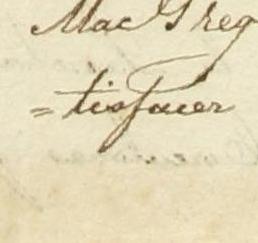 Mac Greg
=tisfacer